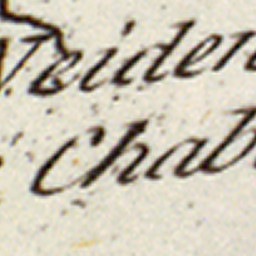 Weiden
Chab